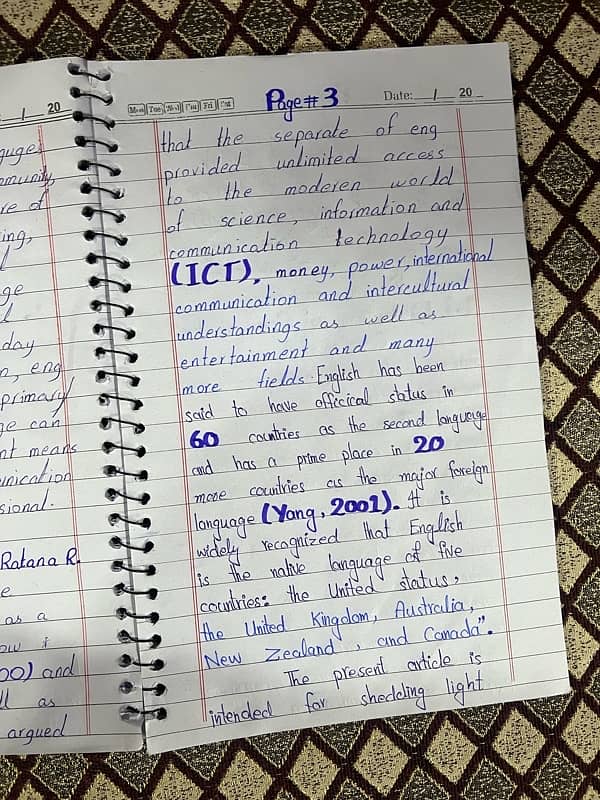 / 20
guges
omunity
re of
ing,
ge
day
n, eng
primary
ge can
nt means
unication
sional.
Ratana R.
e
as a
ow i
00) and
ll as
argued
Mon Tue Wed Thu Fri Sat
Page# 3
Date: / 20
that the separate of eng
provided unlimited access
to the moderen world
of science, information and
communication technology
(ICT), money, power, international
communication and intercultural
understandings as well as
entertainment and many
more fields. English has been
said to have officical status in
60 countries as the second language
and has a prime place in 20
more countries as the major foreign
language (Yang, 2001). It is
widely recognized that English
is the native language of five
countries: the United status,
the United Kingdom, Australia,
New Zealand, and Canada".
The present article is
intended for shedding light